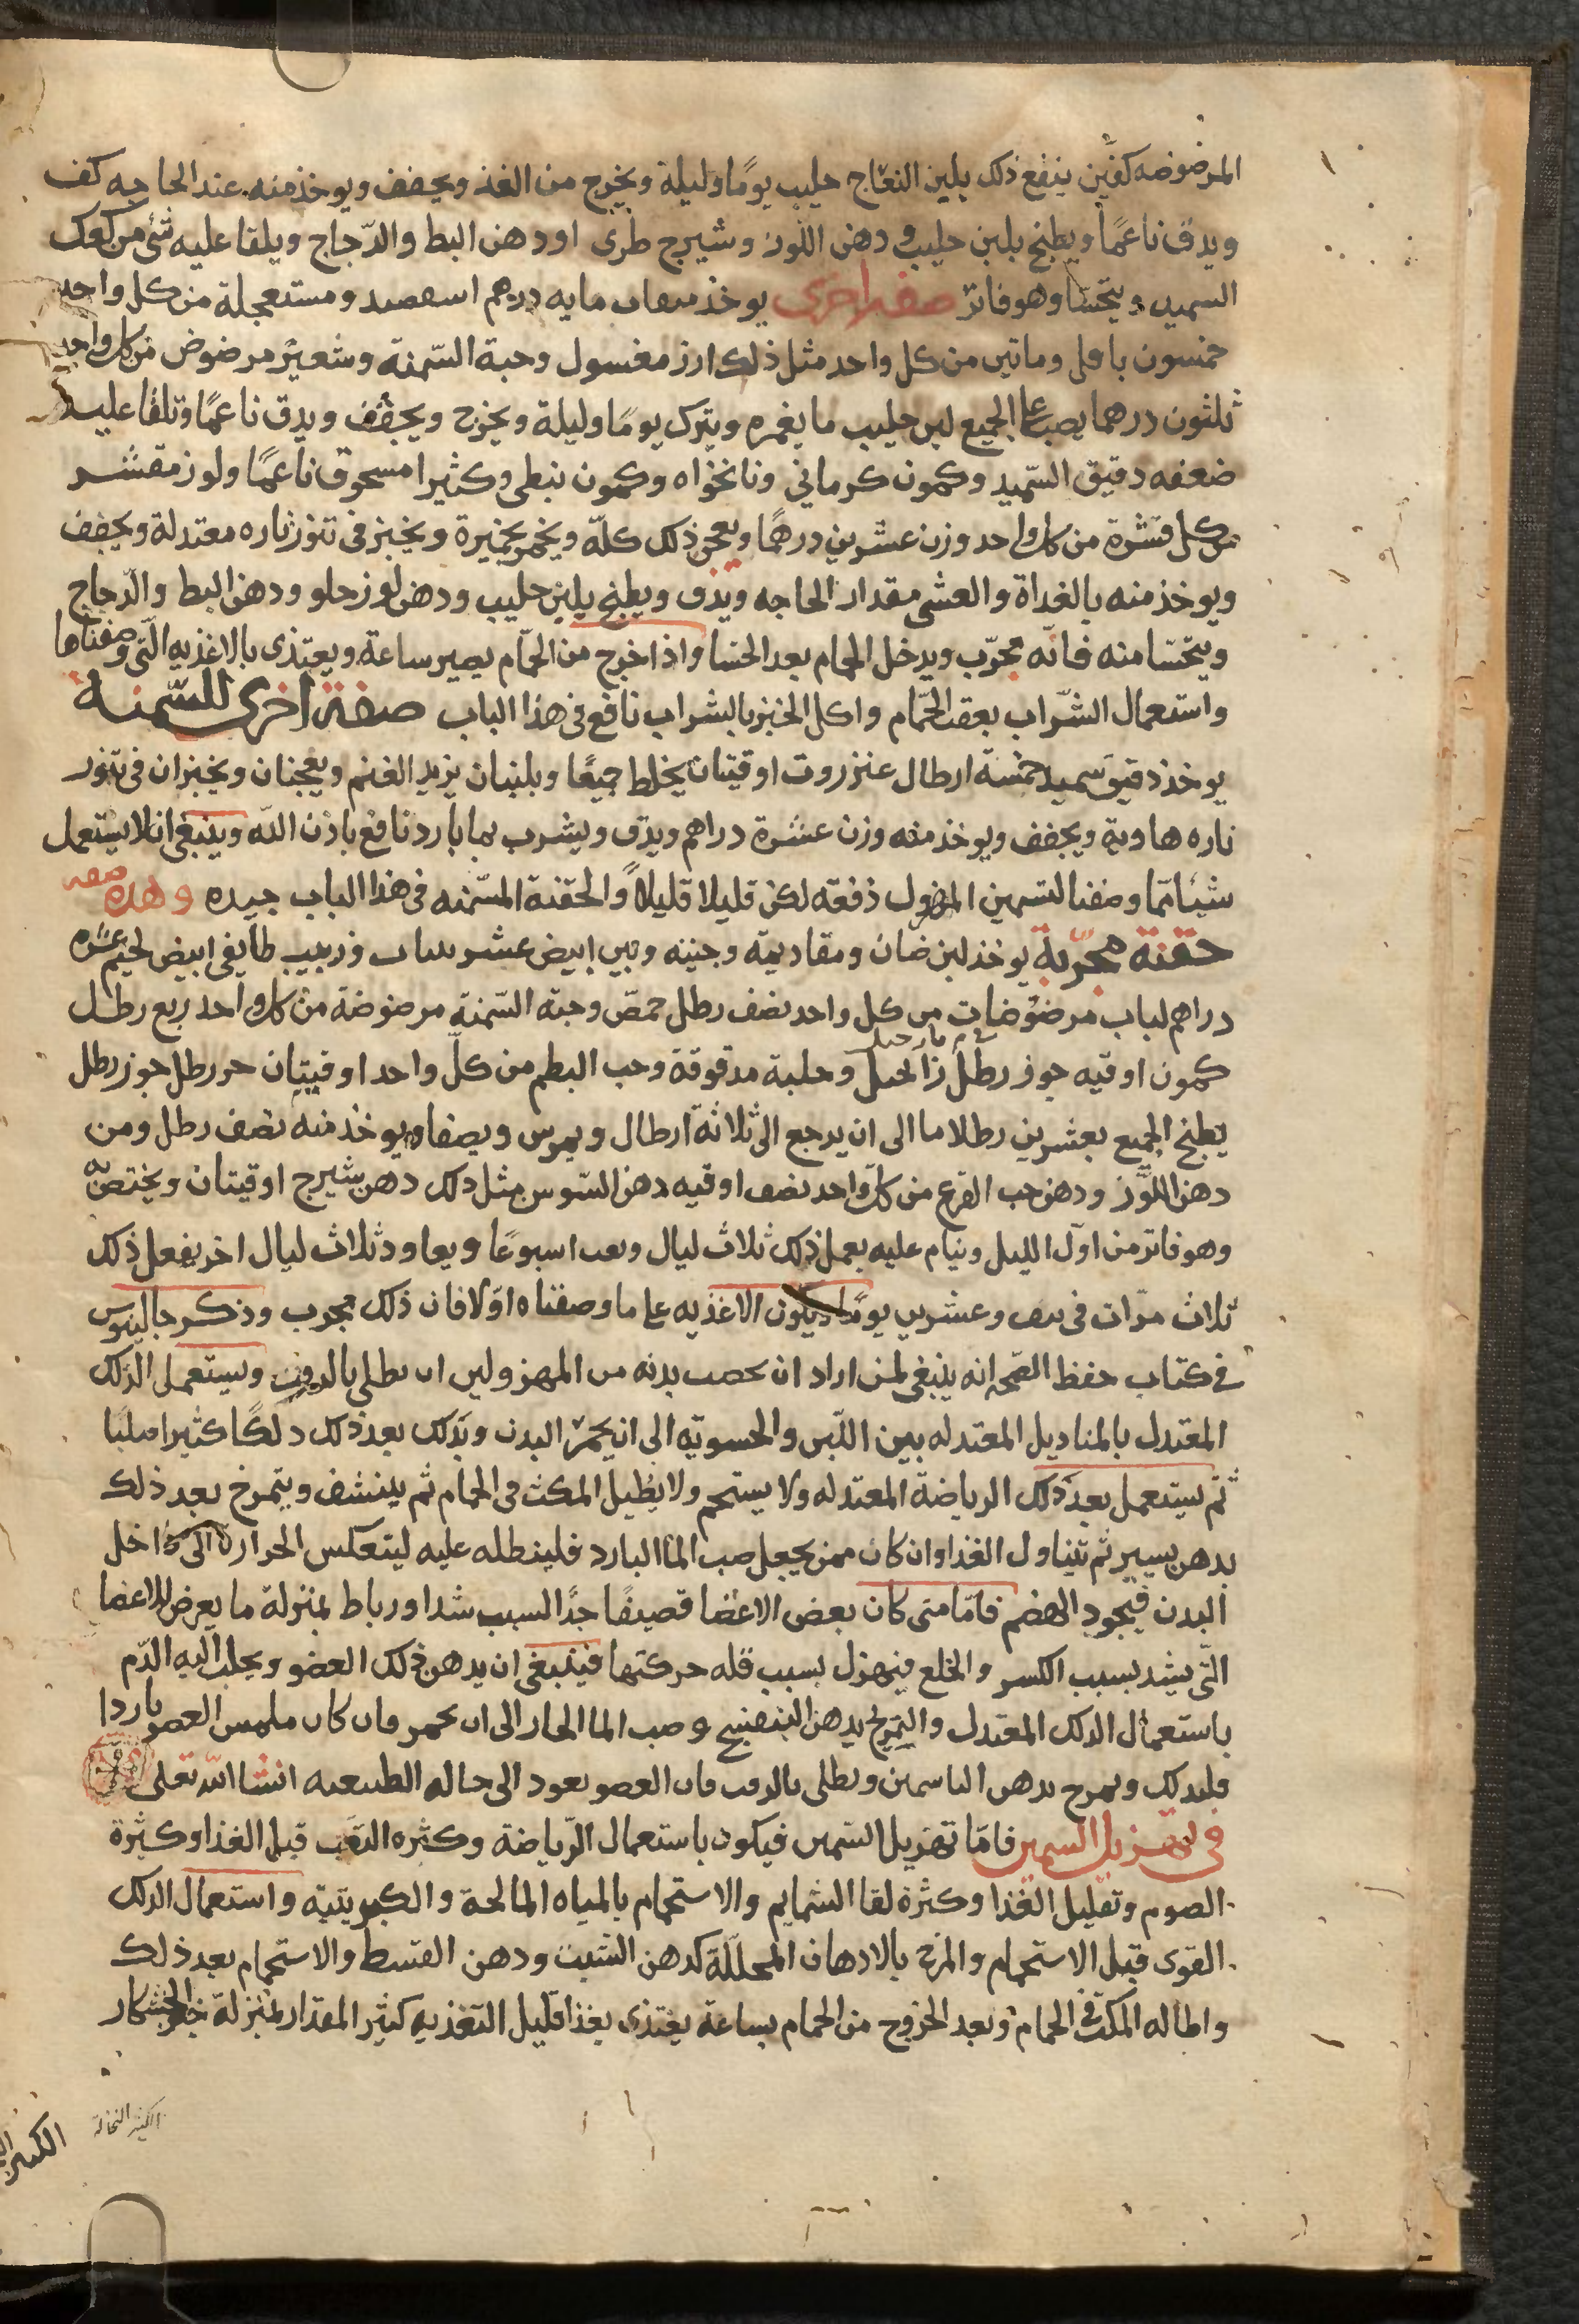 المرضوضه كفين ينقع ذلك بلبن النعاج حليب يومًا وليلة ويخرج من الغد ويجفف ويوخذ منه عند الحاجه كف
ويدق ناعمًا ويطبخ بلبن حليب ودهن اللوز وشيرج طرى او دهن البط والدّجاج ويلقا عليه شئ من كعك
السميد ويتحسّا وهو فاتر صفه اخرى يوخذ مايه درهم ومستعجلة من كل واحد
خمسون باقلى وماتين من كل واحد مثل ذلك ارز مغسول وحبة السّمنة وشعير مرضوض من كل واحد
ثلثون درهما يصب على الجميع لبن حليب ما يغمره ويترك يومًا وليلة ويخرج ويجفّف ويدق ناعمًا وتلقا عليه
ضعفه دقيق السّميد وكمون كرماني ونانخواه وكمون نبطى وكثيرا مسحوق ناعمًا ولوز مقشر
من كل قشرة من كل واحد وزن عشرين درهمًا ويعجن ذلك كلّه ويخمر بخميرة ويخبز فى تنور ناره معتدلة ويجفف
ويوخذ منه بالغداة والعشى مقدار الحاجه ويدق ويطبخ بلبن حليب ودهن لوز حلو ودهن البط والدّجاج
ويتحسّا منه فانّه مجرّب ويدخل الحمام بعد الحسا واذا خرج من الحمّام يصبر ساعة ويغتذى بالاغذيه الّتى وصفناها
واستعمال الشّراب بعقب الحمّام واكل الخبز بالشراب نافع فى هذا الباب صفة اخرى للسّمنه
يوخذ دقيق سميد خمسة ارطال عنزروت اوقيتان يخلط جميعًا ويلتان بزبد الغنم ويعجنان ويخبزان فى تنور
ناره هاديه ويجفف ويوخذ منه وزن عشرة دراهم ويدق ويشرب بما بارد نافع باذن الله وينبغى ان لا يستعمل
شيئا مما وصفنا لتسمين المهزول دفعه لكن قليلا قليلاً والحقنة المسّمنه فى هذا الباب جيده وهذه صفه
حقنة مجرّبة يوخذ لبن ضان ومقاديمه وجنبه وتين ابيض عشر وزبيب طايفى ابيض لحيم عشره
دراهم لباب مرضوضات من كل واحد نصف رطل حمص وحبّه السّمنة مرضوضة من كل واحد ربع رطل
كمون اوقيه جوز رطل وحلبة مدقوقة وحب البطم من كلّ واحد اوقيتان رطل جوز رطل
يطبخ الجميع بعشرين رطلا ما الى ان يرجع الى ثلاثة ارطال ويمرس ويصفا ويوخذ منه نصف رطل ومن
دهن اللّوز ودهن حب القرع من كل واحد نصف اوقيه دهن السّوسن مثل ذلك دهن شيرج اوقيتان ويحتقن به
وهو فاتر من اوّل الليل وينام عليه يعمل ذلك ثلاث ليال اسبوعًا ويعاود ثلاث ليال اخر يفعل ذلك
ثلاث مرّات فى نيف وعشرين يومًا ويكون الاغذيه على ما وصفناه اوّلا فان ذلك مجرب وذكر جالينوس
فى كتاب حفظ الصّحه انه ينبغى لمن اراد ان يخصب بدنه من المهزولين ان يطلى بالزفت ويستعمل الدلك
المعتدل بالمناديل المعتدله بين اللّين والخشونه الى ان يحمرّ البدن ويدلك بعد ذلك دلكًا كثيرا صلبًا
ثم يستعمل بعد ذلك الرياضة المعتدله ولا يستحم ولا يطيل المكث فى الحمام ثم يتنشف ويتمرخ بعد ذلك
بدهن يسير ثم يتناول الغذا وان كان ممن يحتمل صب الما البارد فلينطله عليه لينعكس الحرارة الى داخل
البدن فيجود الهضم فامّا متى كان بعض الاعضا قصيفًا جدًا لسبب شدا ورباط بمنزلة ما يعرض للاعضا
الّتى يشد بسبب الكسر والخلع فيهزل بسبب قله حركتها فينبغى ان يدهن ذلك العضو ويجلب اليه الدّم
باستعمال الدلك المعتدل والتمريخ بدهن البنفسج وصب الما الحار الى ان يحمر فان كان ملمس العضو باردا
فليدلك ويمرخ بدهن الياسمين ويطلى بالزفت فان العضو يعود الى حاله الطبيعيه انشا الله تعلى
فى تهزيل السمين فامّا تهزيل السّمين فيكون باستعمال الرّياضة وكثره التعب قبل الغذا وكثرة
الصوم وتقليل الغذا وكثرة لقا الشمايم والاستحمام بالمياه المالحة والكبريتيّه واستعمال الدلك
القوى قبل الاستحمام والمرخ بالادهان المحلّلة كدهن الشبت ودهن القسط والاستحمام بعد ذلك
واطاله المكث فى الحمام وبعد الخروج من الحمام بساعة يغتذى بغذا قليل التغذيه كثير المقدار بمنزلة خبز الخشكار
الكثير النخالة